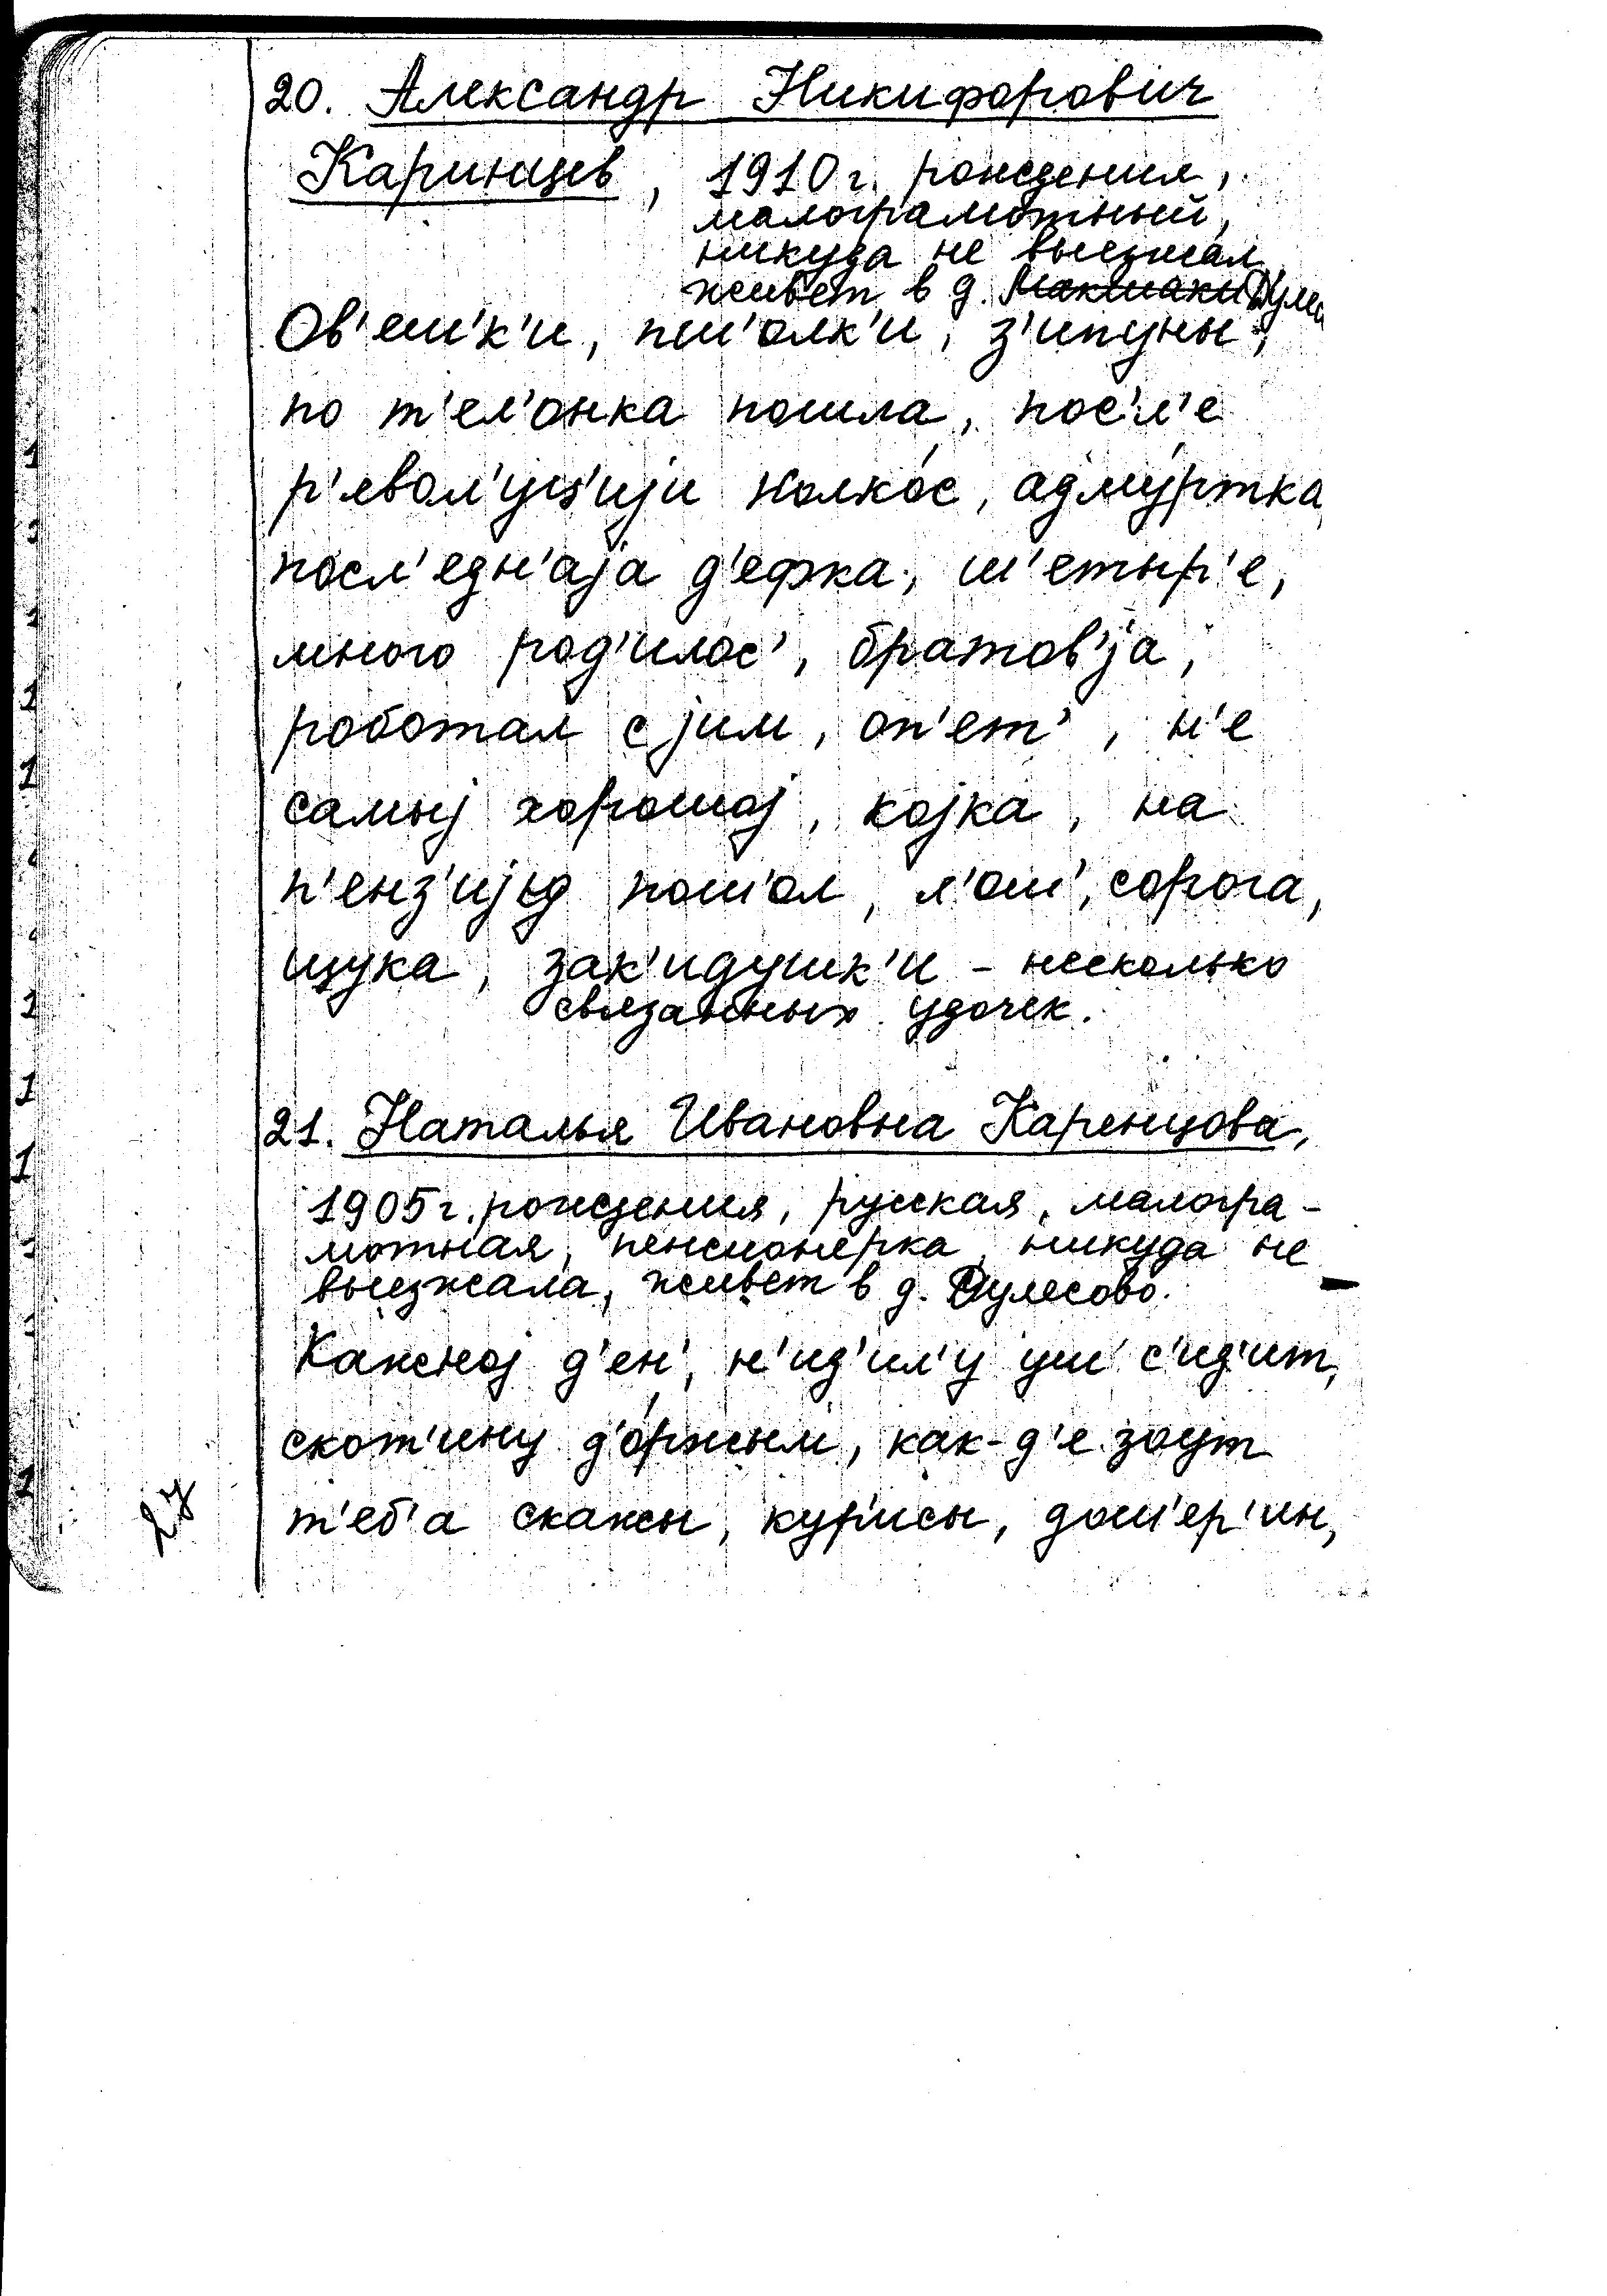 20. Александр Никифорович
Каринцев, 1910 г. рождения,
малограмотный,
никуда не выезжал
живет в д. Макшаки Дуле
Ов'еш'к'и, пш'олк'и, з'ипуны,
по т'ел'онка пошла, пос'л'е
р'евол'уц'ији колко́с, адму́ртка,
посл'едн'аја д'ефка, ш'етыр'е,
много род'илос', братов'ја,
роботал с јим, оп'ет', н'е
самыј хорошој, којка, на
п'енз'ијьд пош'ол, л'ош', сорога,
щука, зак'идушк'и - несколько
связанных удочек.
21. Наталья Ивановна Каренцова,
1905 г. рождения, русская, малогра-
мотная, пенсионерка, никуда не
выезжала, живет в д. Дулесово.
Кажној д'ен', н'ид'ил'у уш с'ид'ит,
скот'ину д'о́ржым, как-д'е зоут
т'еб'а скажы, кур'исы, дош'ер'ин,
27